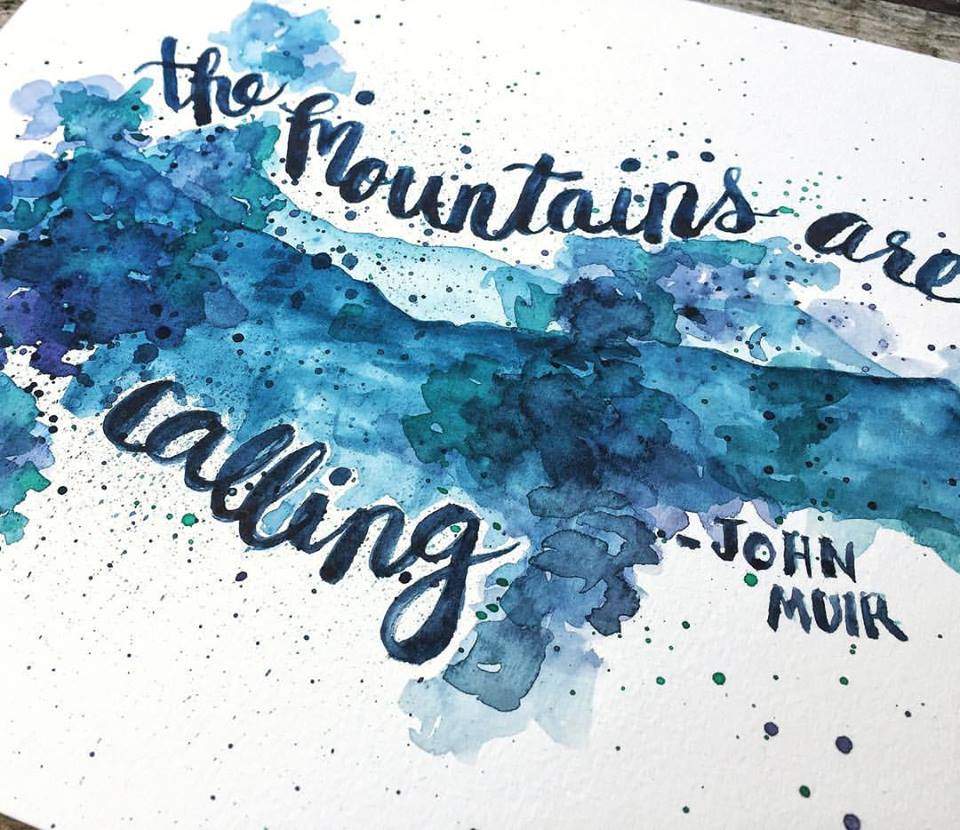 the Mountains are
calling
-JOHN
MUIR